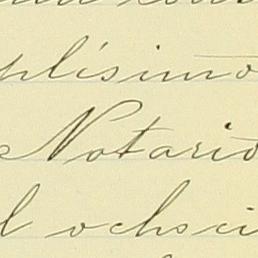 plísimo
Notario
l ochsci